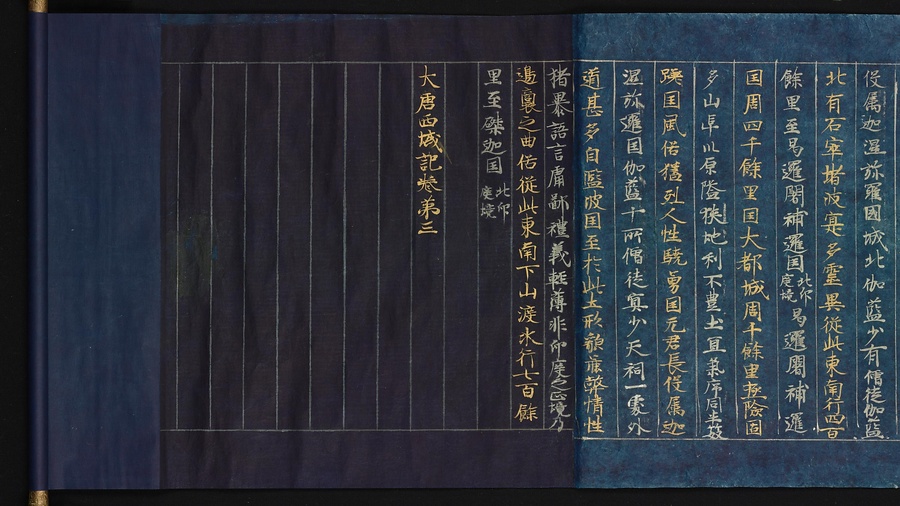 役属迦濕弥羅國城北伽藍少有僧徒伽藍
北有石窣堵波寔多靈異從此東南行四百
餘里至曷邏闍補邏国北印度境曷邏闍補邏
国周四千餘里国大都城周十餘里極險固
多山阜川原隘狹地利不豊土宜氣序同半笯
蹉国風俗猛烈人性驍勇国无君長役属迦
濕弥邏国伽藍十所僧徒寡少天祠一處外
道甚多自藍波国至於此土形貌麁弊情性
猪暴語言庸鄙禮義輕薄非印度之正境乃
邊裔之曲俗從此東南下山渡水行七百餘
里至磔迦国北印度境
大唐西域記卷第三